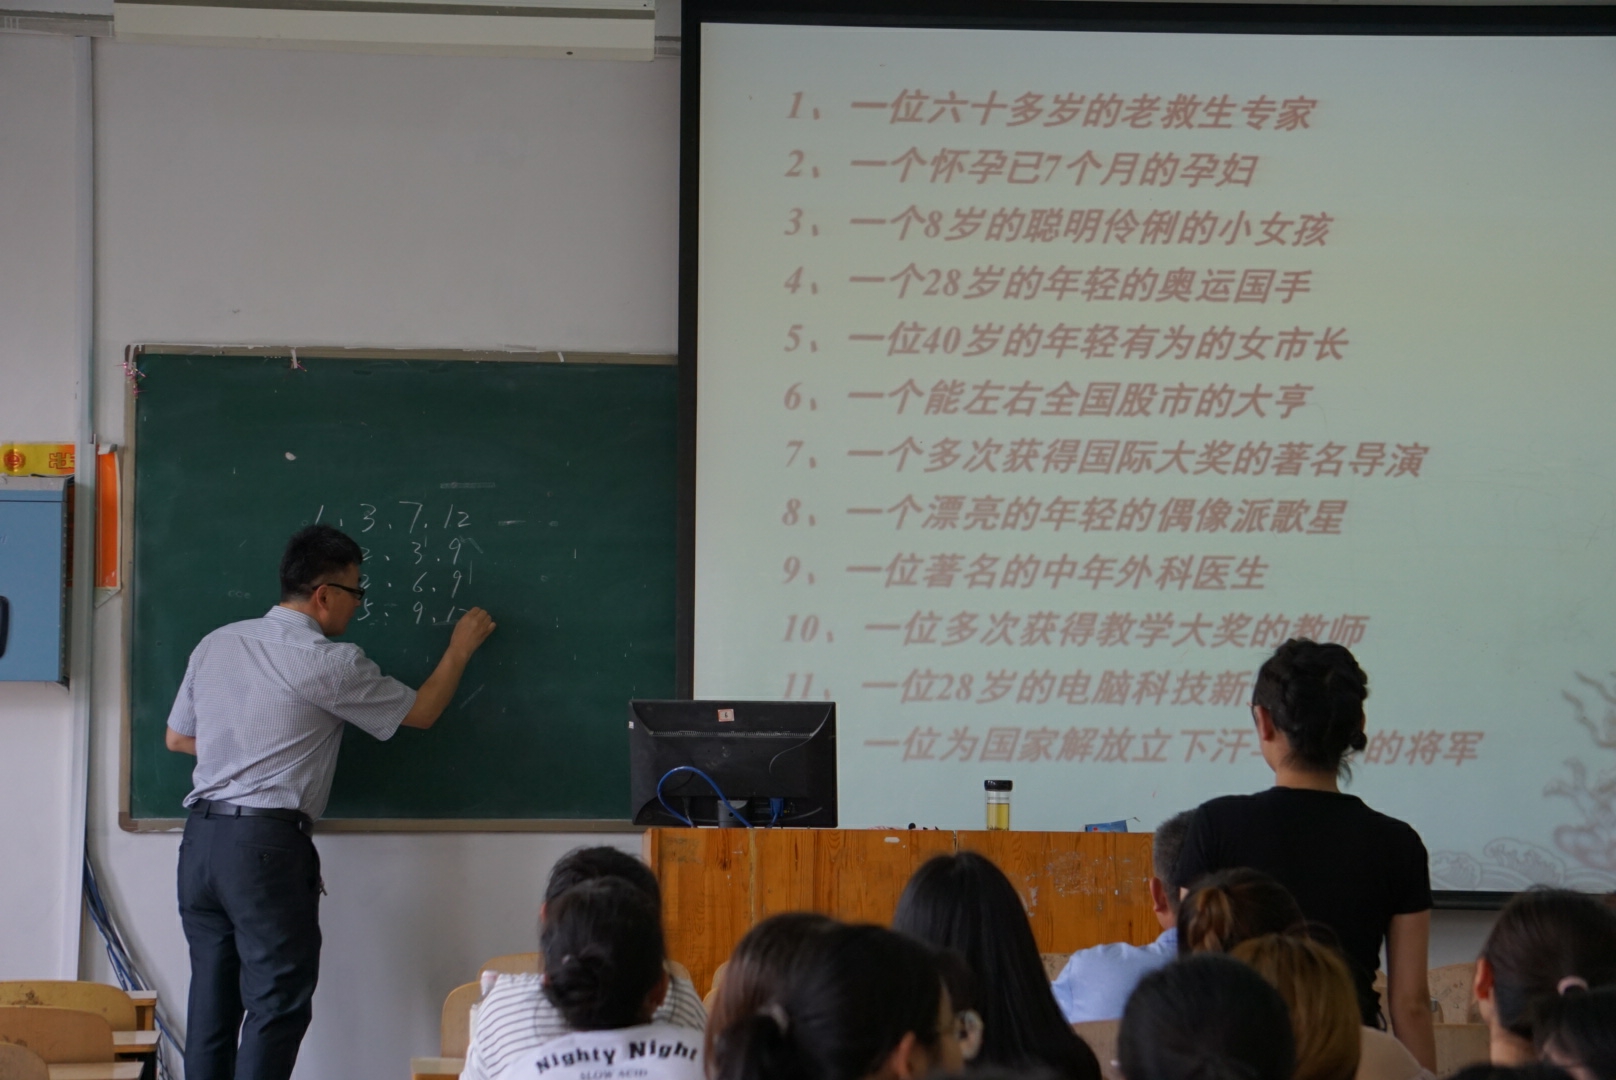 1、一位六十多岁的老救生专家
2、一个怀孕已7个月的孕妇
3、一个8岁的聪明伶俐的小女孩
4、一个28岁的年轻的奥运国手
5、一位40岁的年轻有为的女市长
6、一个能左右全国股市的大亨
7、一个多次获得国际大奖的著名导演
8、一个漂亮的年轻的偶像派歌星
9、一位著名的中年外科医生
10、一位多次获得教学大奖的教师
11、一位28岁的电脑科技新
一位为国家解放立下汗 的将军
1、3、7、12
2、3、9
2、6、9
5、9、12
Nighty Night
SLOW ACID